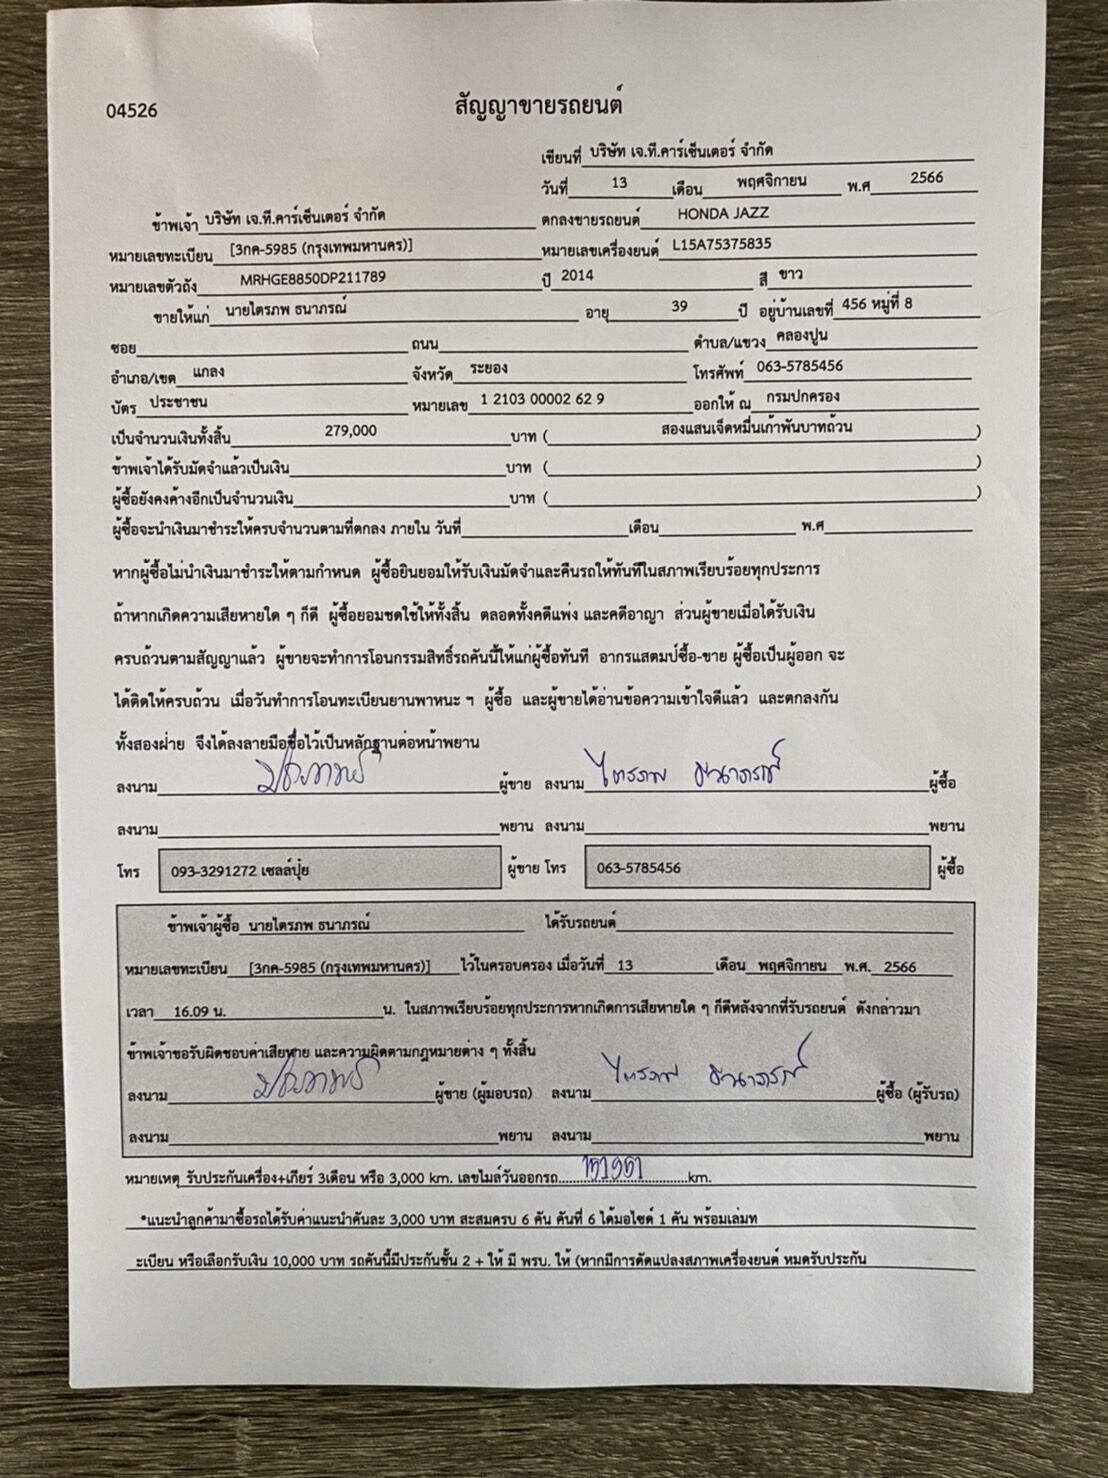 04526
สัญญาขายรถยนต์
เขียนที่ บริษัท เจ.ที.คาร์เซ็นเตอร์ จำกัด
วันที่ 13 เดือน พฤศจิกายน พ.ศ 2566
ข้าพเจ้า บริษัท เจ.ที.คาร์เซ็นเตอร์ จำกัด ตกลงขายรถยนต์ HONDA JAZZ
หมายเลขทะเบียน [3กค-5985 (กรุงเทพมหานคร)] หมายเลขเครื่องยนต์ L15A75375835
หมายเลขตัวถัง MRHGE8850DP211789 ปี 2014 สี ขาว
ขายให้แก่ นายไตรภพ ธนาภรณ์ อายุ 39 ปี อยู่บ้านเลขที่ 456 หมู่ที่ 8
ซอย ถนน ตำบล/แขวง คลองปูน
อำเภอ/เขต แกลง จังหวัด ระยอง โทรศัพท์ 063-5785456
บัตร ประชาชน หมายเลข 1 2103 00002 62 9 ออกให้ ณ กรมปกครอง
เป็นจำนวนเงินทั้งสิ้น 279,000 บาท ( สองแสนเจ็ดหมื่นเก้าพันบาทถ้วน )
ข้าพเจ้าได้รับมัดจำแล้วเป็นเงิน บาท ( )
ผู้ซื้อยังคงค้างอีกเป็นจำนวนเงิน บาท ( )
ผู้ซื้อจะนำเงินมาชำระให้ครบจำนวนตามที่ตกลง ภายใน วันที่ เดือน พ.ศ
หากผู้ซื้อไม่นำเงินมาชำระให้ตามกำหนด ผู้ซื้อยินยอมให้รับเงินมัดจำและคืนรถให้ทันทีในสภาพเรียบร้อยทุกประการ
ถ้าหากเกิดความเสียหายใด ๆ ก็ดี ผู้ซื้อยอมชดใช้ให้ทั้งสิ้น ตลอดทั้งคดีแพ่ง และคดีอาญา ส่วนผู้ขายเมื่อได้รับเงิน
ครบถ้วนตามสัญญาแล้ว ผู้ขายจะทำการโอนกรรมสิทธิ์รถคันนี้ให้แก่ผู้ซื้อทันที อากรแสตมป์ซื้อ-ขาย ผู้ซื้อเป็นผู้ออก จะ
ได้ติดให้ครบถ้วน เมื่อวันทำการโอนทะเบียนยานพาหนะ ฯ ผู้ซื้อ และผู้ขายได้อ่านข้อความเข้าใจดีแล้ว และตกลงกัน
ทั้งสองฝ่าย จึงได้ลงลายมือชื่อไว้เป็นหลักฐานต่อหน้าพยาน
ลงนาม ผู้ขาย ลงนาม ไตรภพ ธนาภรณ์ ผู้ซื้อ
ลงนาม พยาน ลงนาม พยาน
โทร 093-3291272 เซลล์ปุ๋ย ผู้ขาย โทร 063-5785456 ผู้ซื้อ
ข้าพเจ้าผู้ซื้อ นายไตรภพ ธนาภรณ์ ได้รับรถยนต์
หมายเลขทะเบียน [3กค-5985 (กรุงเทพมหานคร)] ไว้ในครอบครอง เมื่อวันที่ 13 เดือน พฤศจิกายน พ.ศ. 2566
เวลา 16.09 น. น. ในสภาพเรียบร้อยทุกประการหากเกิดการเสียหายใด ๆ ก็ดีหลังจากที่รับรถยนต์ ดังกล่าวมา
ข้าพเจ้าขอรับผิดชอบค่าเสียหาย และความผิดตามกฎหมายต่าง ๆ ทั้งสิ้น
ลงนาม ผู้ขาย (ผู้มอบรถ) ลงนาม ไตรภพ ธนาภรณ์ ผู้ซื้อ (ผู้รับรถ)
ลงนาม พยาน ลงนาม พยาน
หมายเหตุ รับประกันเครื่อง+เกียร์ 3เดือน หรือ 3,000 km. เลขไมล์วันออกรถ..............................km.
*แนะนำลูกค้ามาซื้อรถได้รับค่าแนะนำคันละ 3,000 บาท สะสมครบ 6 คัน คันที่ 6 ได้มอไซด์ 1 คัน พร้อมเล่มท
ะเบียน หรือเลือกรับเงิน 10,000 บาท รถคันนี้มีประกันชั้น 2 + ให้ มี พรบ. ให้ (หากมีการดัดแปลงสภาพเครื่องยนต์ หมดรับประกัน